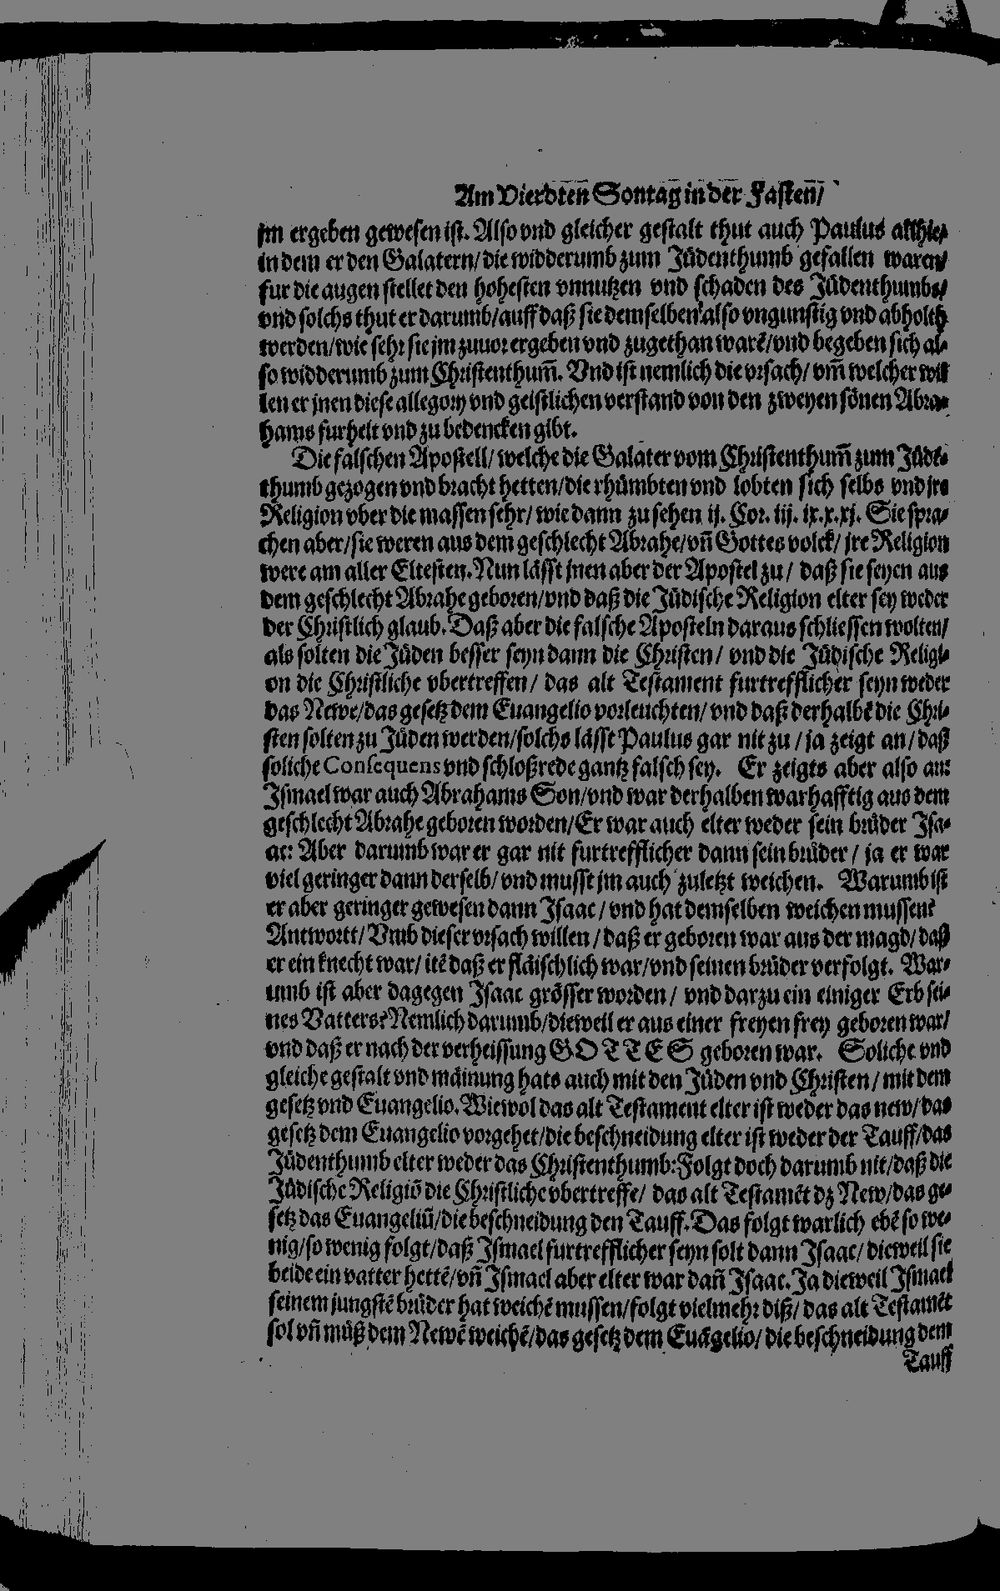 Am Vierdten Sontag in der Fasten/
jm ergeben gewesen ist. Also vnd gleicher gestalt thut auch Paulus allhie/
in dem er den Galatern/ die widderumb zum Jüdenthumb gefallen waren/
fur die augen stellet den hohesten vnnutzen vnd schaden des Jüdenthumbs/
vnd solchs thut er darumb/ auff daß sie demselben also vngunstig vnd abholth
werden/ wie sehr sie jm zuuor ergeben vnd zugethan warē/ vnd begeben sich al-
so widderumb zum Christenthum̄. Vnd ist nemlich die vrsach/ vm̄ welcher wil
len er jnen diese allegory vnd geistlichen verstand von den zweyen sönen Abra-
hams furhelt vnd zu bedencken gibt.
Die falschen Apostell/ welche die Galater vom Christenthum̄ zum Jüdē-
thumb gezogen vnd bracht hetten/ die rhümbten vnd lobten sich selbs vnd jre
Religion vber die massen sehr/ wie dann zu sehen ij. Cor. iij. ix. x. xj. Sie spra-
chen aber/ sie weren aus dem geschlecht Abrahe/ vn̄ Gottes volck/ jre Religion
were am aller Eltesten. Nun lässt jnen aber der Apostel zu/ daß sie seyen aus
dem geschlecht Abrahe geboren/ vnd daß die Jüdische Religion elter sey weder
der Christlich glaub. Daß aber die falsche Aposteln daraus schliessen wolten/
als solten die Jüden besser seyn dann die Christen/ vnd die Jüdische Religi-
on die Christliche vbertreffen/ das alt Testament furtrefflicher seyn weder
das Newe/ das gesetz dem Euangelio vorleuchten/ vnd daß derhalbē die Chri-
sten solten zu Jüden werden/ solchs lässt Paulus gar nit zu/ ja zeigt an/ daß
soliche Consequens vnd schloßrede gantz falsch sey. Er zeigts aber also an:
Ismael war auch Abrahams Son/ vnd war derhalben warhafftig aus dem
geschlecht Abrahe geboren worden/ Er war auch elter weder sein brüder Isa-
ac: Aber darumb war er gar nit furtrefflicher dann sein brüder/ ja er war
viel geringer dann derselb/ vnd musst jm auch zuletzt weichen. Warumb ist
er aber geringer gewesen dann Isaac/ vnd hat demselben weichen mussen?
Antwortt/ Vmb dieser vrsach willen/ daß er geboren war aus der magd/ daß
er ein knecht war/ itē daß er fläischlich war/ vnd seinen brüder verfolgt. War-
umb ist aber dagegen Isaac grösser worden/ vnd darzu ein einiger Erb sei-
nes Vatters? Nemlich darumb/ dieweil er aus einer freyen frey geboren war/
vnd daß er nach der verheissung GOTTES geboren war. Soliche vnd
gleiche gestalt vnd mäinung hats auch mit den Jüden vnd Christen/ mit dem
gesetz vnd Euangelio. Wiewol das alt Testament elter ist weder das new/ das
gesetz dem Euangelio vorgehet/ die beschneidung elter ist weder der Tauff/ das
Jüdenthumb elter weder das Christenthumb: Folgt doch darumb nit/ daß die
Jüdische Religiō die Christliche vbertreffe/ das alt Testamēt dz New/ das ge-
setz das Euangeliū/ die beschneidung den Tauff. Das folgt warlich ebē so we-
nig/ so wenig folgt/ daß Ismael furtrefflicher seyn solt dann Isaac/ dieweil sie
beide ein vatter hettē/ vn̄ Ismael aber elter war dan̄ Isaac. Ja dieweil Ismael
seinem jungstē brüder hat weichē mussen/ folgt vielmehr diß/ das alt Testamēt
sol vn̄ müß dem Newē weichē/ das gesetz dem Euāgelio/ die beschneidung dem
Tauff